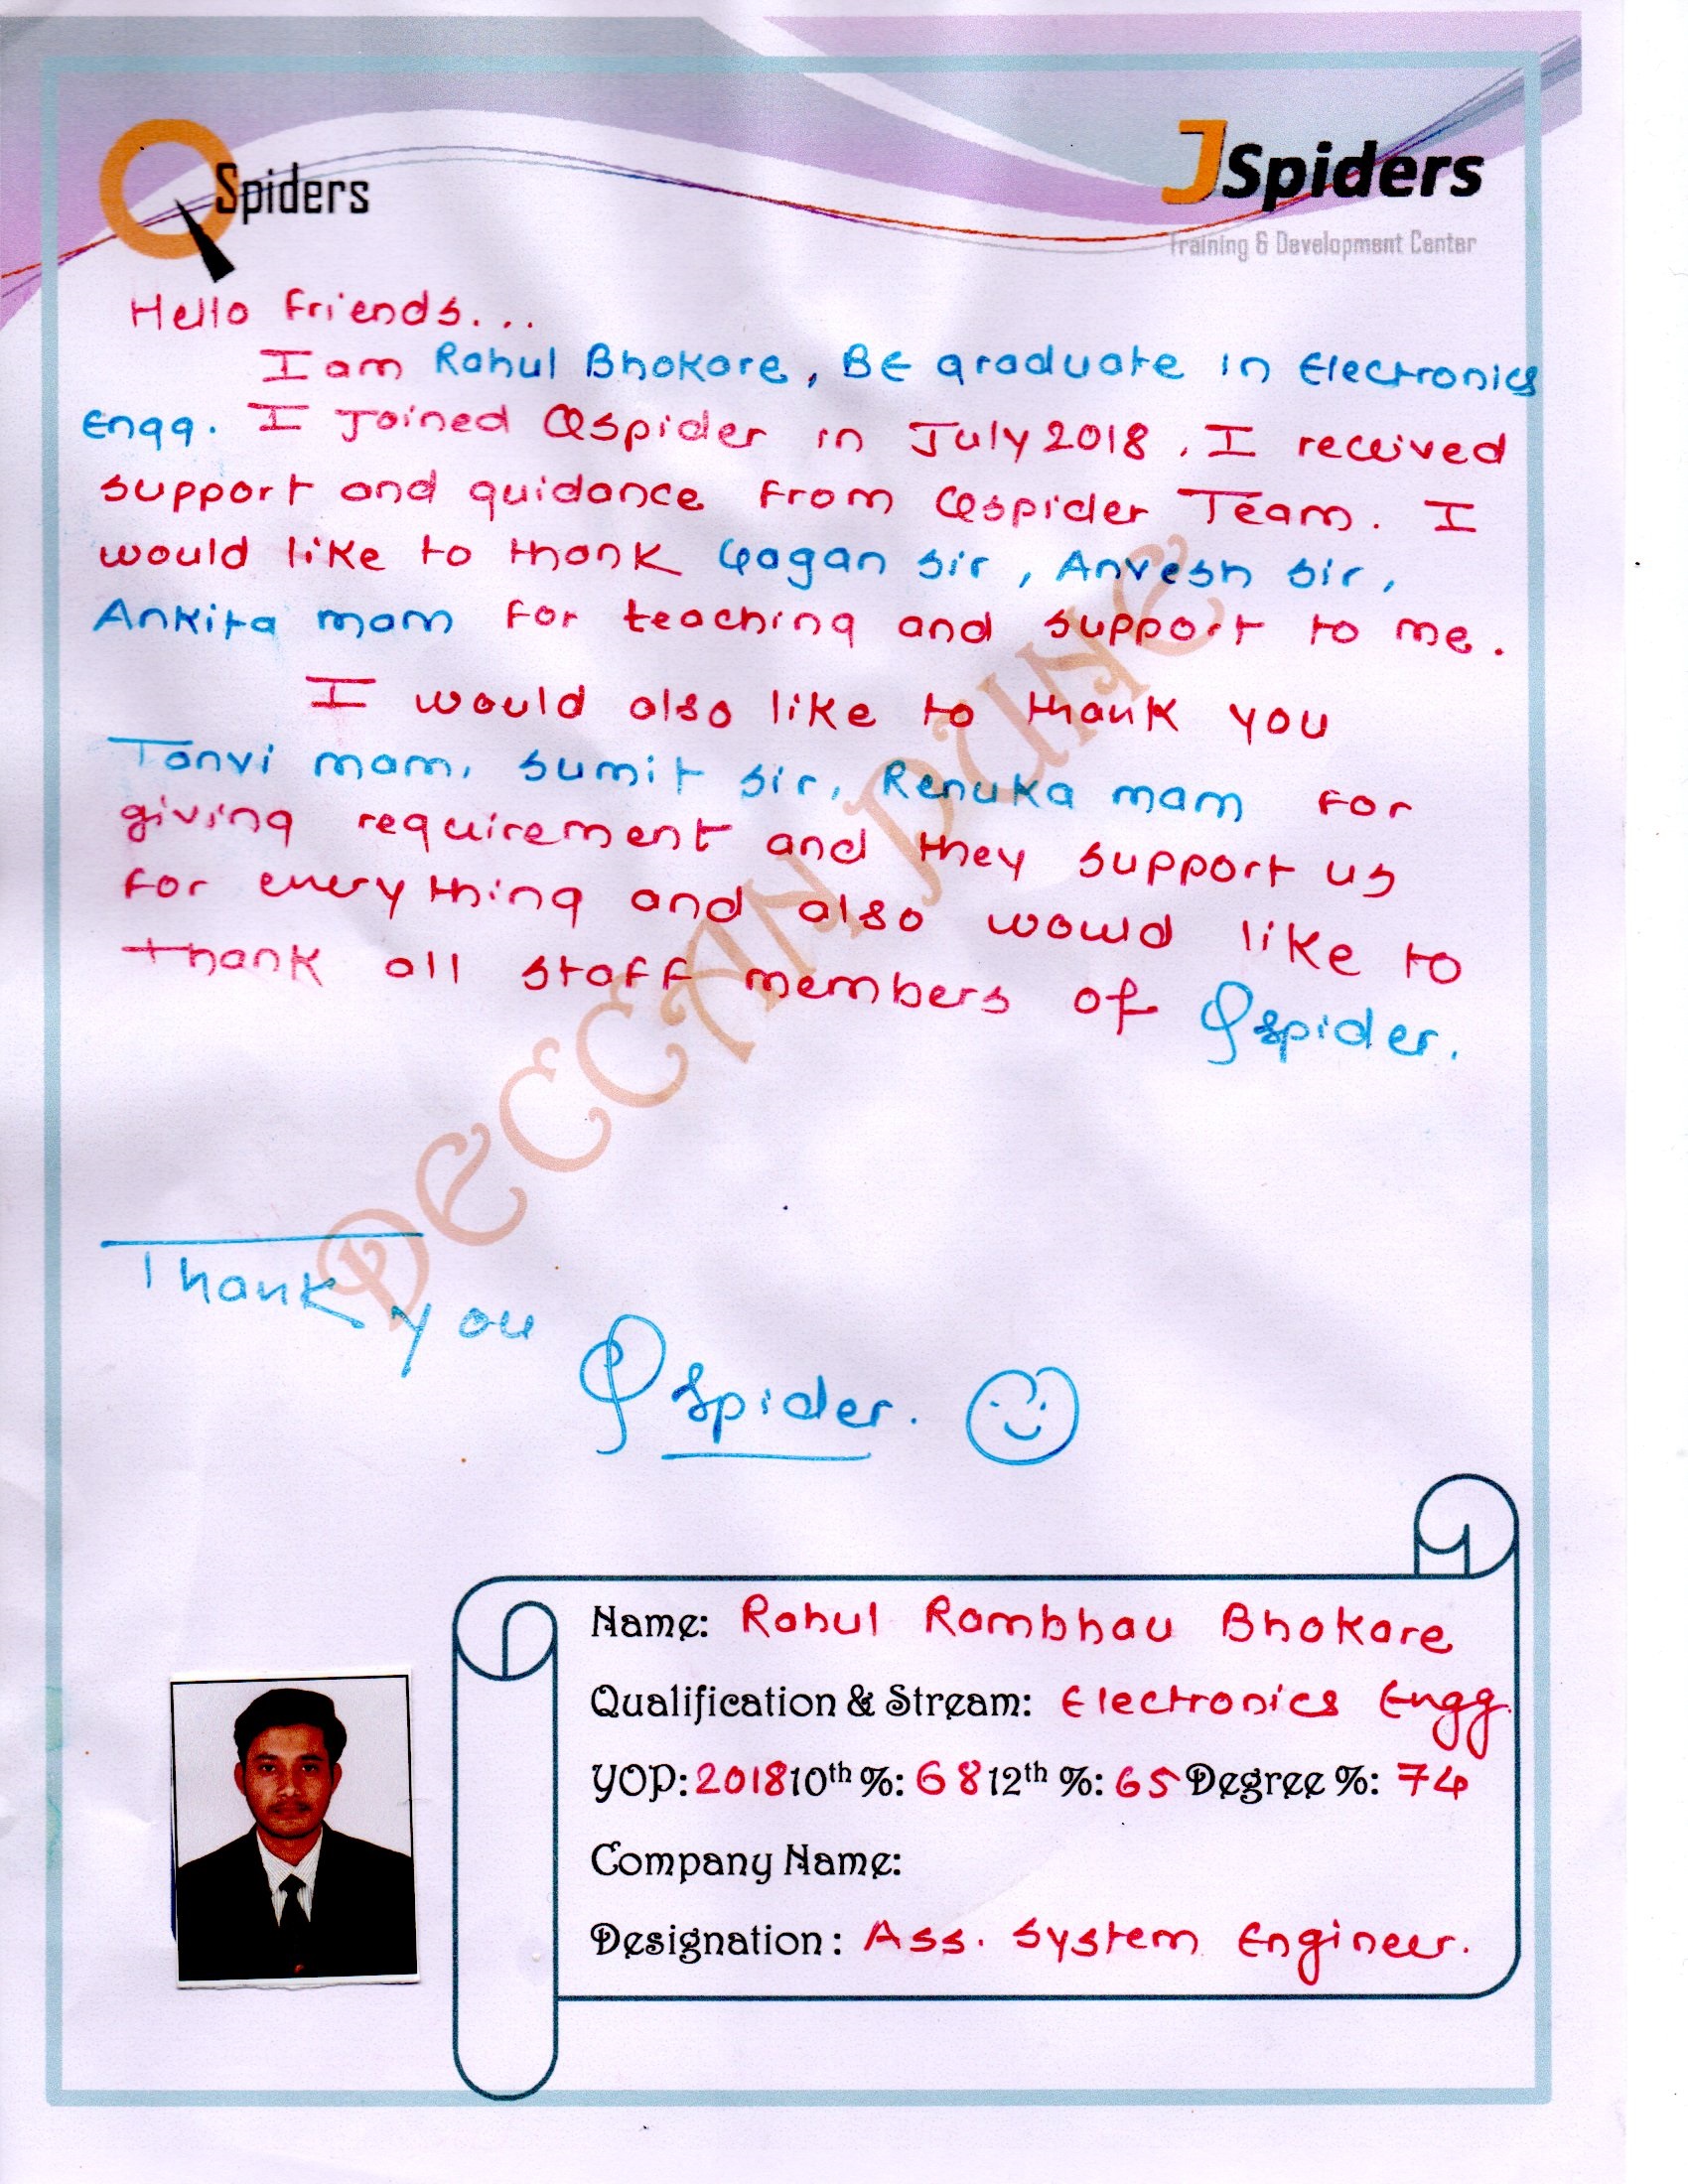 QSpiders
JSpiders
Training & Development Center
Hello Friends...
I am Rahul Bhokare, BE graduate in Electronics
Engg. I joined Qspider in July 2018. I received
support and guidance from Qspider Team. I
would like to thank Gagan sir, Anvesh sir,
Ankita mam for teaching and support to me.
I would also like to thank you
Tanvi mam, sumit sir, Renuka mam for
giving requirement and they support us
for everything and also would like to
thank all staff members of Qspider.
DECCAN PUNE
Thank you
Qspider.
Name: Rahul Rambhau Bhokare
Qualification & Stream: Electronics Engg.
YOP: 2018 10th %: 68 12th %: 65 Degree %: 74
Company Name:
Designation: Ass. System Engineer.